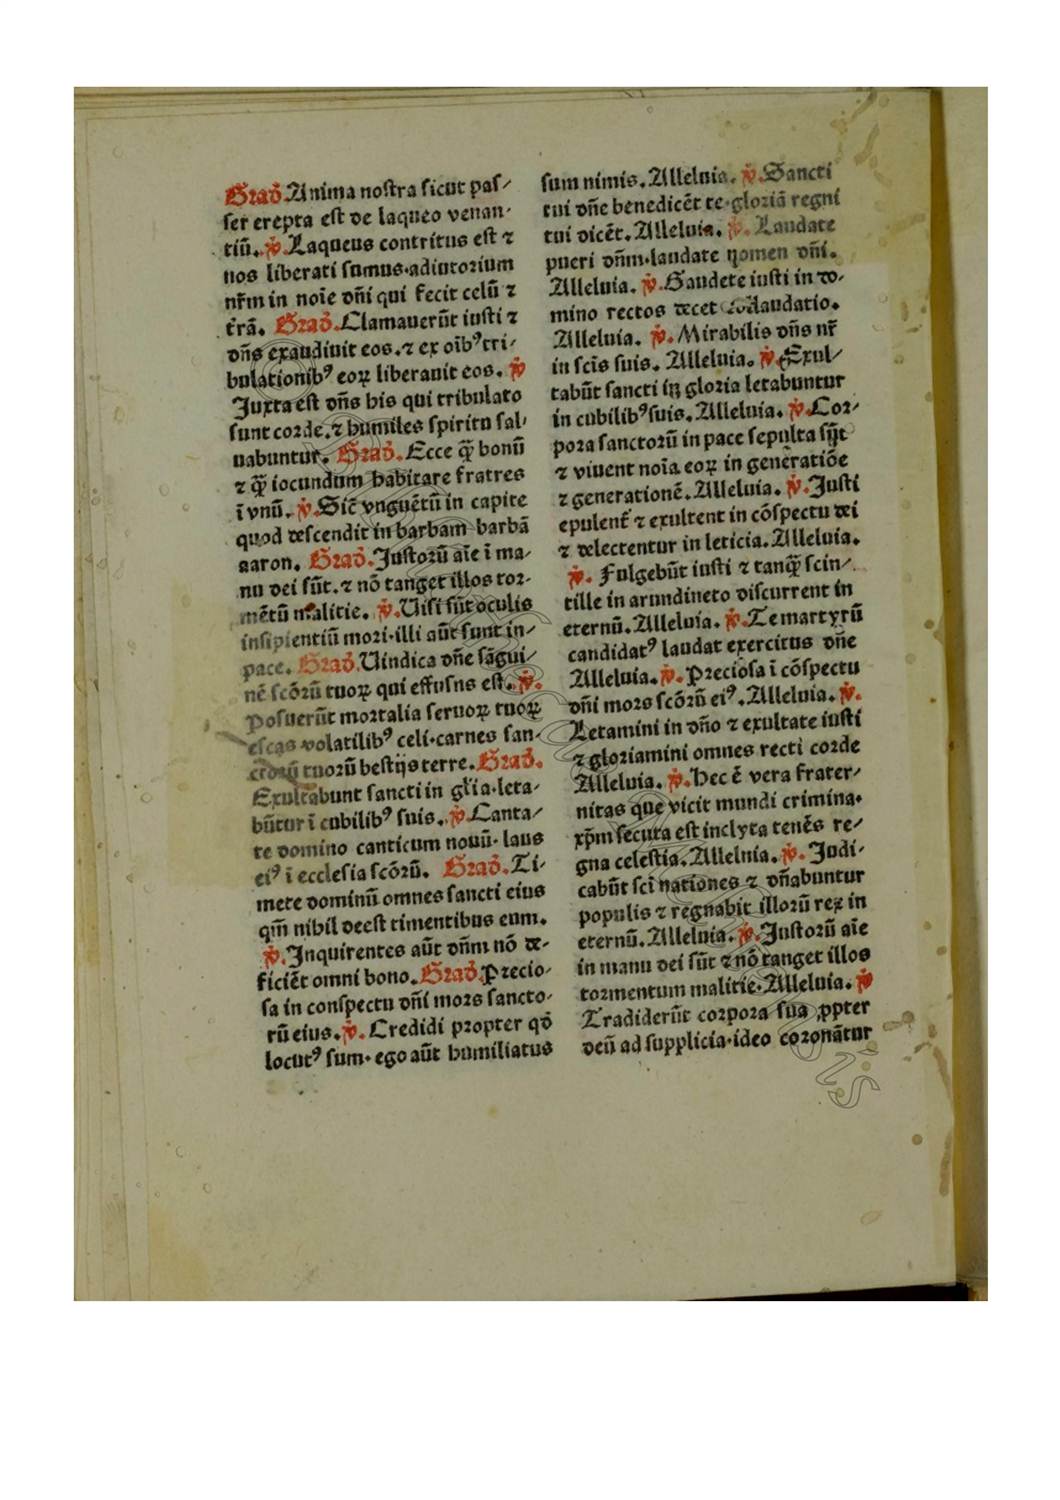 Grad̄. Anima noſtra ſicut paſ⸗
ſer erepta eſt de laqueo venan⸗
tiū. ꝟ. Laqueus contritus eſt ⁊
nos liberati ſumus·adiutorium
nr̄m in noīe dn̄i qui fecit celū ⁊
t̄rā. Grad̄. Clamauerūt iuſti ⁊
dn̄s exaudiuit eos.⁊ ex oīb⁹ tri⸗
bulationib⁹ eoꝝ liberauit eos. ꝟ
Juxta eſt dn̄s his qui tribulato
ſunt corde.⁊ humiles ſpiritu ſal⸗
uabuntur. Grad̄. Ecce ꝙ̄ bonū
⁊ ꝙ̄ iocundum habitare fratres
ī vnū. ꝟ. Sic̄ vnguētū in capite
quod deſcendit in barbam barbā
aaron. Grad̄. Juſtorū aīe ī ma⸗
nu dei ſūt.⁊ nō tanget illos tor⸗
mētū malitie. ꝟ. Uiſi ſūt oculis
inſipientiū mori·illi aūt ſunt in⸗
pace. Grad̄. Uindica dn̄e ſāgui⸗
nē ſcōrū tuoꝝ qui effuſus eſt. ꝟ.
Poſuerūt mortalia ſeruoꝝ tuoꝝ
eſcas volatilib⁹ celi·carnes ſan⸗
ctorū tuorū beſtijs terre. Grad̄.
Exultabunt ſancti in gl̄ia·leta⸗
būtur ī cubilib⁹ ſuis. ꝟ. Canta⸗
te domino canticum nouū·laus
ei⁹ ī eccleſia ſcōrū. Grad̄. Ti⸗
mete dominū omnes ſancti eius
qm̄ nihil deeſt timentibus eum.
ꝟ. Inquirentes aūt dn̄m nō de⸗
ficiēt omni bono. Grad̄. Precio⸗
ſa in conſpectu dn̄i mors ſancto⸗
rū eius. ꝟ. Credidi propter qd̄
locut⁹ ſum·ego aūt humiliatus
ſum nimis. Alleluia. ꝟ. Sancti
tui dn̄e benedicēt te·gloriā regni
tui dicēt. Alleluia. ꝟ. Laudate
pueri dn̄m·laudate nomen dn̄i.
Alleluia. ꝟ. Gaudete iuſti in do⸗
mino rectos decet collaudatio.
Alleluia. ꝟ. Mirabilis dn̄s nr̄
in ſcīs ſuis. Alleluia. ꝟ. Exul⸗
tabūt ſancti in gloria letabuntur
in cubilib⁹ ſuis. Alleluia. ꝟ. Cor⸗
pora ſanctorū in pace ſepulta ſūt
⁊ viuent noīa eoꝝ in generatiōe
⁊ generationē. Alleluia. ꝟ. Juſti
epulent̄ ⁊ exultent in cōſpectu dei
⁊ delectentur in leticia. Alleluia.
ꝟ. Fulgebūt iuſti ⁊ tanꝙ̄ ſcin⸗
tille in arundineto diſcurrent in
eternū. Alleluia. ꝟ. Te martyrū
candidat⁹ laudat exercitus dn̄e
Alleluia. ꝟ. Precioſa ī cōſpectu
dn̄i mors ſcōrū ei⁹. Alleluia. ꝟ.
Letamini in dn̄o ⁊ exultate iuſti
⁊ gloriamini omnes recti corde
Alleluia. ꝟ. Hec ē vera frater⸗
nitas que vicit mundi crimina·
xp̄m ſecuta eſt inclyta tenēs re⸗
gna celeſtia. Alleluia. ꝟ. Judi⸗
cabūt ſcī nationes ⁊ dn̄abuntur
populis ⁊ regnabit illorū rex in
eternū. Alleluia. ꝟ. Juſtorū aīe
in manu dei ſūt ⁊ nō tanget illos
tormentum malitie. Alleluia. ꝟ
Tradiderūt corpora ſua ꝓpter
deū ad ſupplicia·ideo coronātur